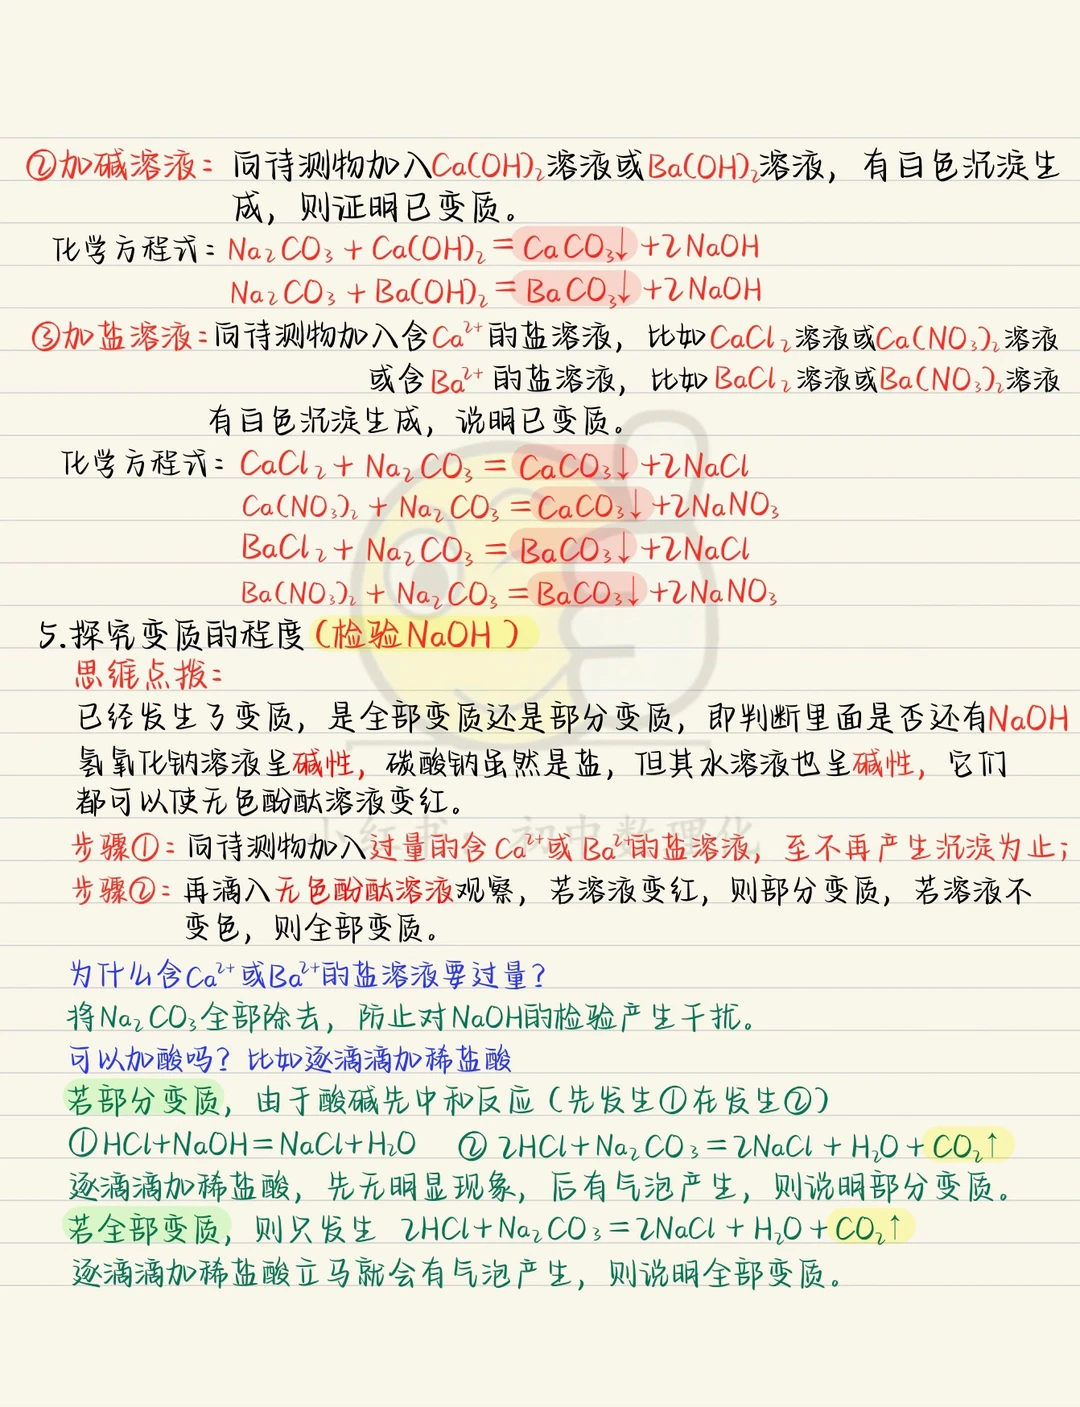 ②加碱溶液：向待测物加入Ca(OH)₂溶液或Ba(OH)₂溶液，有白色沉淀生
成，则证明已变质。
化学方程式：Na₂CO₃+Ca(OH)₂=CaCO₃↓+2NaOH
Na₂CO₃+Ba(OH)₂=BaCO₃↓+2NaOH
③加盐溶液：向待测物加入含Ca²⁺的盐溶液，比如CaCl₂溶液或Ca(NO₃)₂溶液
或含Ba²⁺的盐溶液，比如BaCl₂溶液或Ba(NO₃)₂溶液
有白色沉淀生成，说明已变质。
化学方程式：CaCl₂+Na₂CO₃=CaCO₃↓+2NaCl
Ca(NO₃)₂+Na₂CO₃=CaCO₃↓+2NaNO₃
BaCl₂+Na₂CO₃=BaCO₃↓+2NaCl
Ba(NO₃)₂+Na₂CO₃=BaCO₃↓+2NaNO₃
5.探究变质的程度（检验NaOH）
思维点拨：
已经发生了变质，是全部变质还是部分变质，即判断里面是否还有NaOH
氢氧化钠溶液呈碱性，碳酸钠虽然是盐，但其水溶液也呈碱性，它们
都可以使无色酚酞溶液变红。
小红书：初中数理化
步骤①：向待测物加入过量的含Ca²⁺或Ba²⁺的盐溶液，至不再产生沉淀为止；
步骤②：再滴入无色酚酞溶液观察，若溶液变红，则部分变质，若溶液不
变色，则全部变质。
为什么含Ca²⁺或Ba²⁺的盐溶液要过量？
将Na₂CO₃全部除去，防止对NaOH的检验产生干扰。
可以加酸吗？比如逐滴滴加稀盐酸
若部分变质，由于酸碱先中和反应（先发生①在发生②）
①HCl+NaOH=NaCl+H₂O ②2HCl+Na₂CO₃=2NaCl+H₂O+CO₂↑
逐滴滴加稀盐酸，先无明显现象，后有气泡产生，则说明部分变质。
若全部变质，则只发生 2HCl+Na₂CO₃=2NaCl+H₂O+CO₂↑
逐滴滴加稀盐酸立马就会有气泡产生，则说明全部变质。